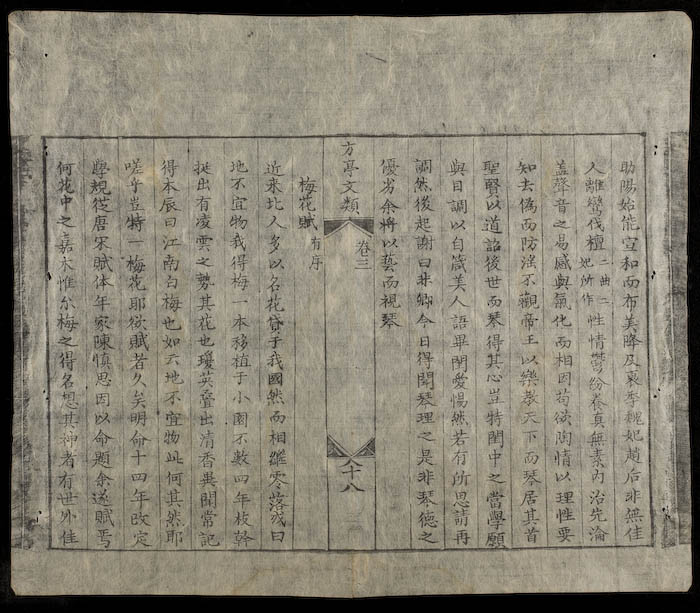 助陽始能宣和而布美降及衰季魏妃趙后非無佳
人離鸞伐檀二曲二妃所作性情鬱紛養真無素內治先淪
蓋聲音之易感與氣化而相因苟欲陶情以理性要
知去偽而防淫不觀帝王以樂教天下而琴居其首
聖賢以道詔後世而琴得其心豈特閨中之當學願
與日調以自箴美人語畢閔愛惕然若有所思請再
調然後起謝曰非卿今日得聞琴理之是非琴德之
優劣余將以藝而視琴
方亭文類 卷三 八十八
梅花賦 有序
近來北人多以名花貸于我國然而相繼零落或曰
地不宜物我得梅一本移植于小園不數四年枝幹
挺出有凌雲之勢其花也瓊英疊出清香異聞常記
得本辰曰江南白梅也如云地不宜物此何其然耶
嗟乎豈特一梅花耶欲賦者久矣明命十四年改定
學規從唐宋賦体年家陳慎思因以命題余遂賦焉
何花中之嘉木惟尔梅之得名想其神者有世外佳